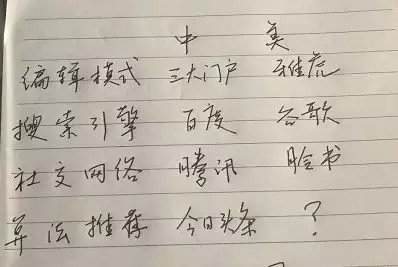 中 美
编辑模式 三大门户 雅虎
搜索引擎 百度 谷歌
社交网络 腾讯 脸书
算法推荐 今日头条 ?